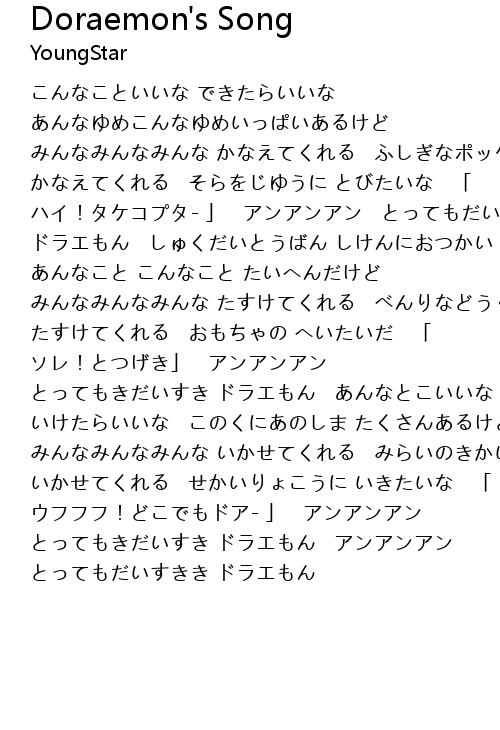 Doraemon's Song
YoungStar
こんなこといいな できたらいいな
あんなゆめこんなゆめいっぱいあるけど
みんなみんなみんな かなえてくれる　ふしぎなポッ
かなえてくれる　そらをじゆうに とびたいな　「
ハイ！タケコプタ-」　アンアンアン　とってもだい
ドラエもん　しゅくだいとうばん しけんにおつかい
あんなこと こんなこと たいへんだけど
みんなみんなみんな たすけてくれる　べんりなどう
たすけてくれる　おもちゃの へいたいだ　「
ソレ！とつげき」　アンアンアン
とってもきだいすき ドラエもん　あんなとこいいな
いけたらいいな　このくにあのしま たくさんあるけ
みんなみんなみんな いかせてくれる　みらいのきか
いかせてくれる　せかいりょこうに いきたいな　「
ウフフフ！どこでもドア-」　アンアンアン
とってもきだいすき ドラエもん　アンアンアン
とってもだいすきき ドラエもん